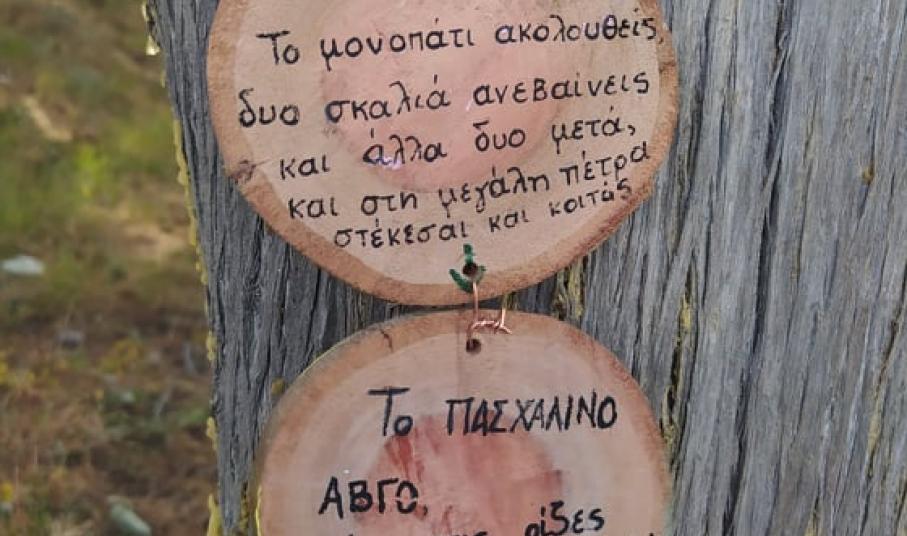 Το μονοπάτι ακολουθείς,
δυο σκαλιά ανεβαίνεις
και άλλα δυο μετά,
και στη μεγάλη πέτρα
στέκεσαι και κοιτάς
Το ΠΑΣΧΑΛΙΝΟ
ΑΒΓΟ,
ρίζες